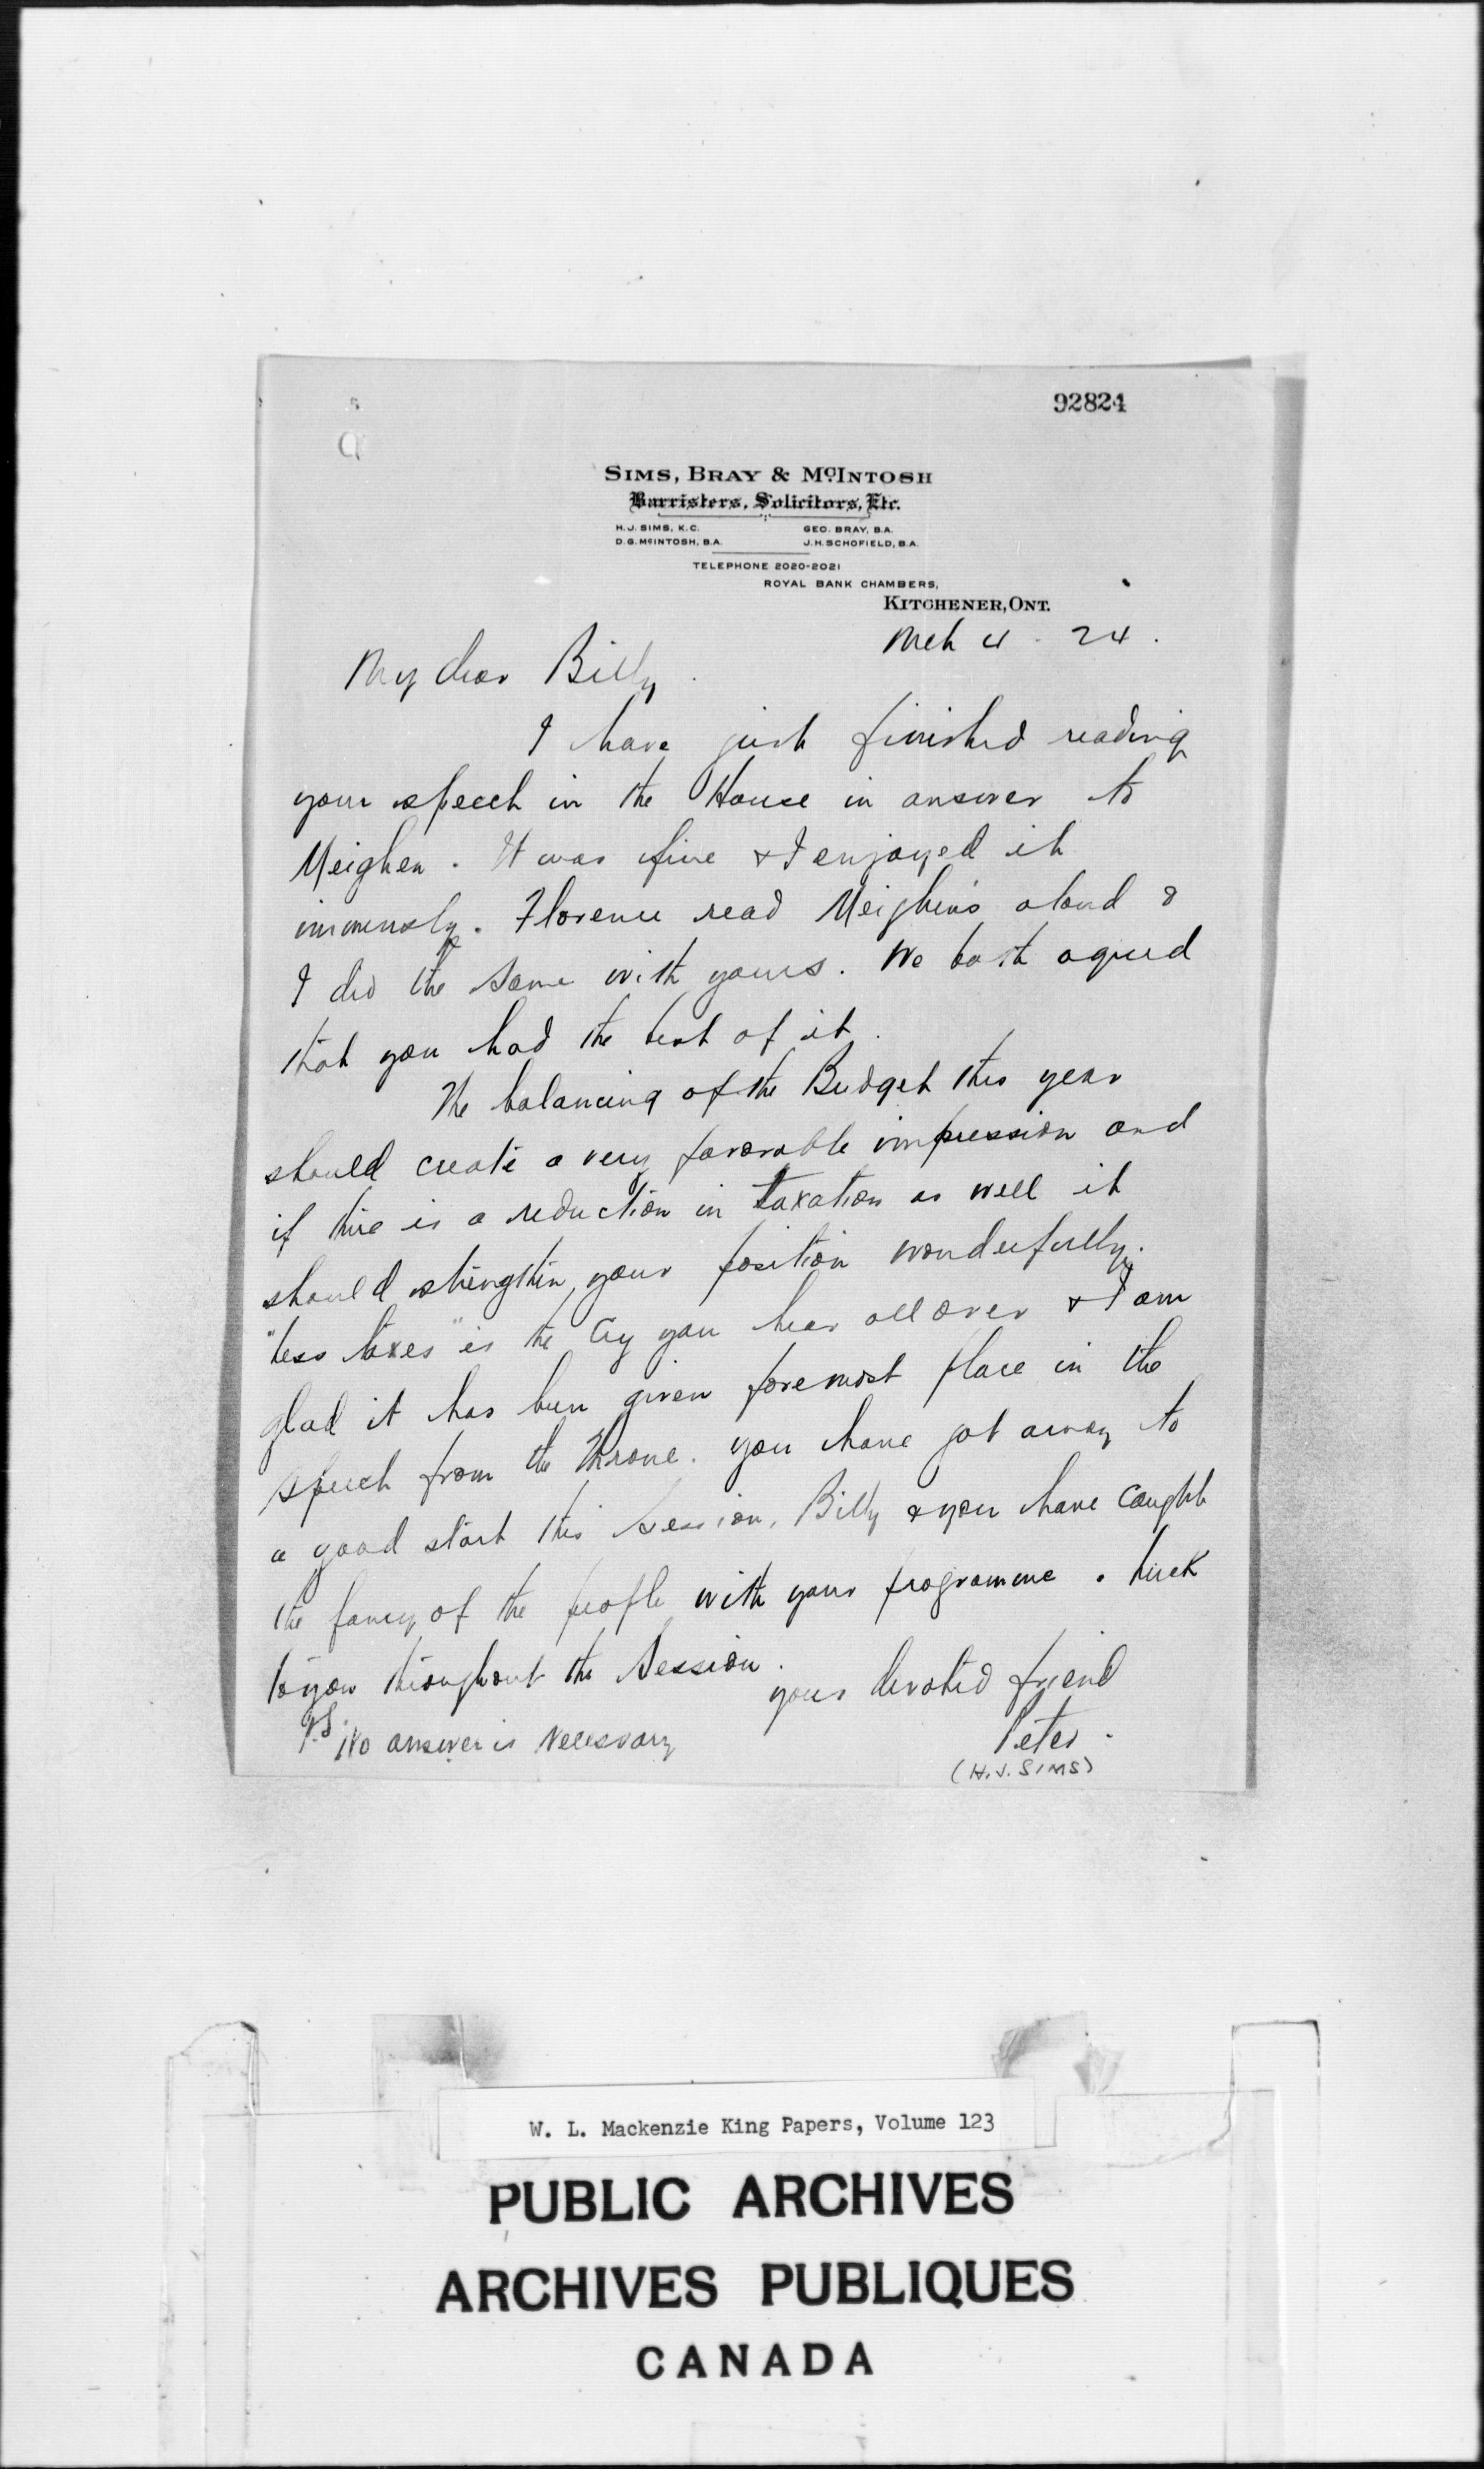 92824
SIMS, BRAY & McINTOSH
Barristers, Solicitors, Etc.
H.J. SIMS, K.C. GEO. BRAY, B.A.
D.G. McINTOSH, B.A. J.H. SCHOFIELD, B.A.
TELEPHONE 2020-2021
ROYAL BANK CHAMBERS,
KITCHENER, ONT.
Mch 4 - 24.
My dear Billy.
I have just finished reading
your speech in the House in answer to
Meighen. It was fine & I enjoyed it
immensely. Florence read Meighen's aloud &
I did the same with yours. We both agreed
that you had the best of it.
The balancing of the Budget this year
should create a very favorable impression and
if there is a reduction in taxation as well it
should strengthen your position wonderfully.
"Less taxes" is the cry you hear all over & I am
glad it has been given foremost place in the
speech from the Throne. You have got away to
a good start this session, Billy & you have caught
the fancy of the people with your programme. Luck
to you throughout the Session.
your devoted friend
Peter.
P.S. No answer is necessary
(H.J. SIMS)
W. L. Mackenzie King Papers, Volume 123
PUBLIC ARCHIVES
ARCHIVES PUBLIQUES
CANADA